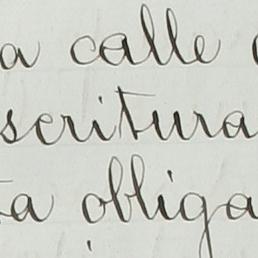 a calle
scritura
ta obliga